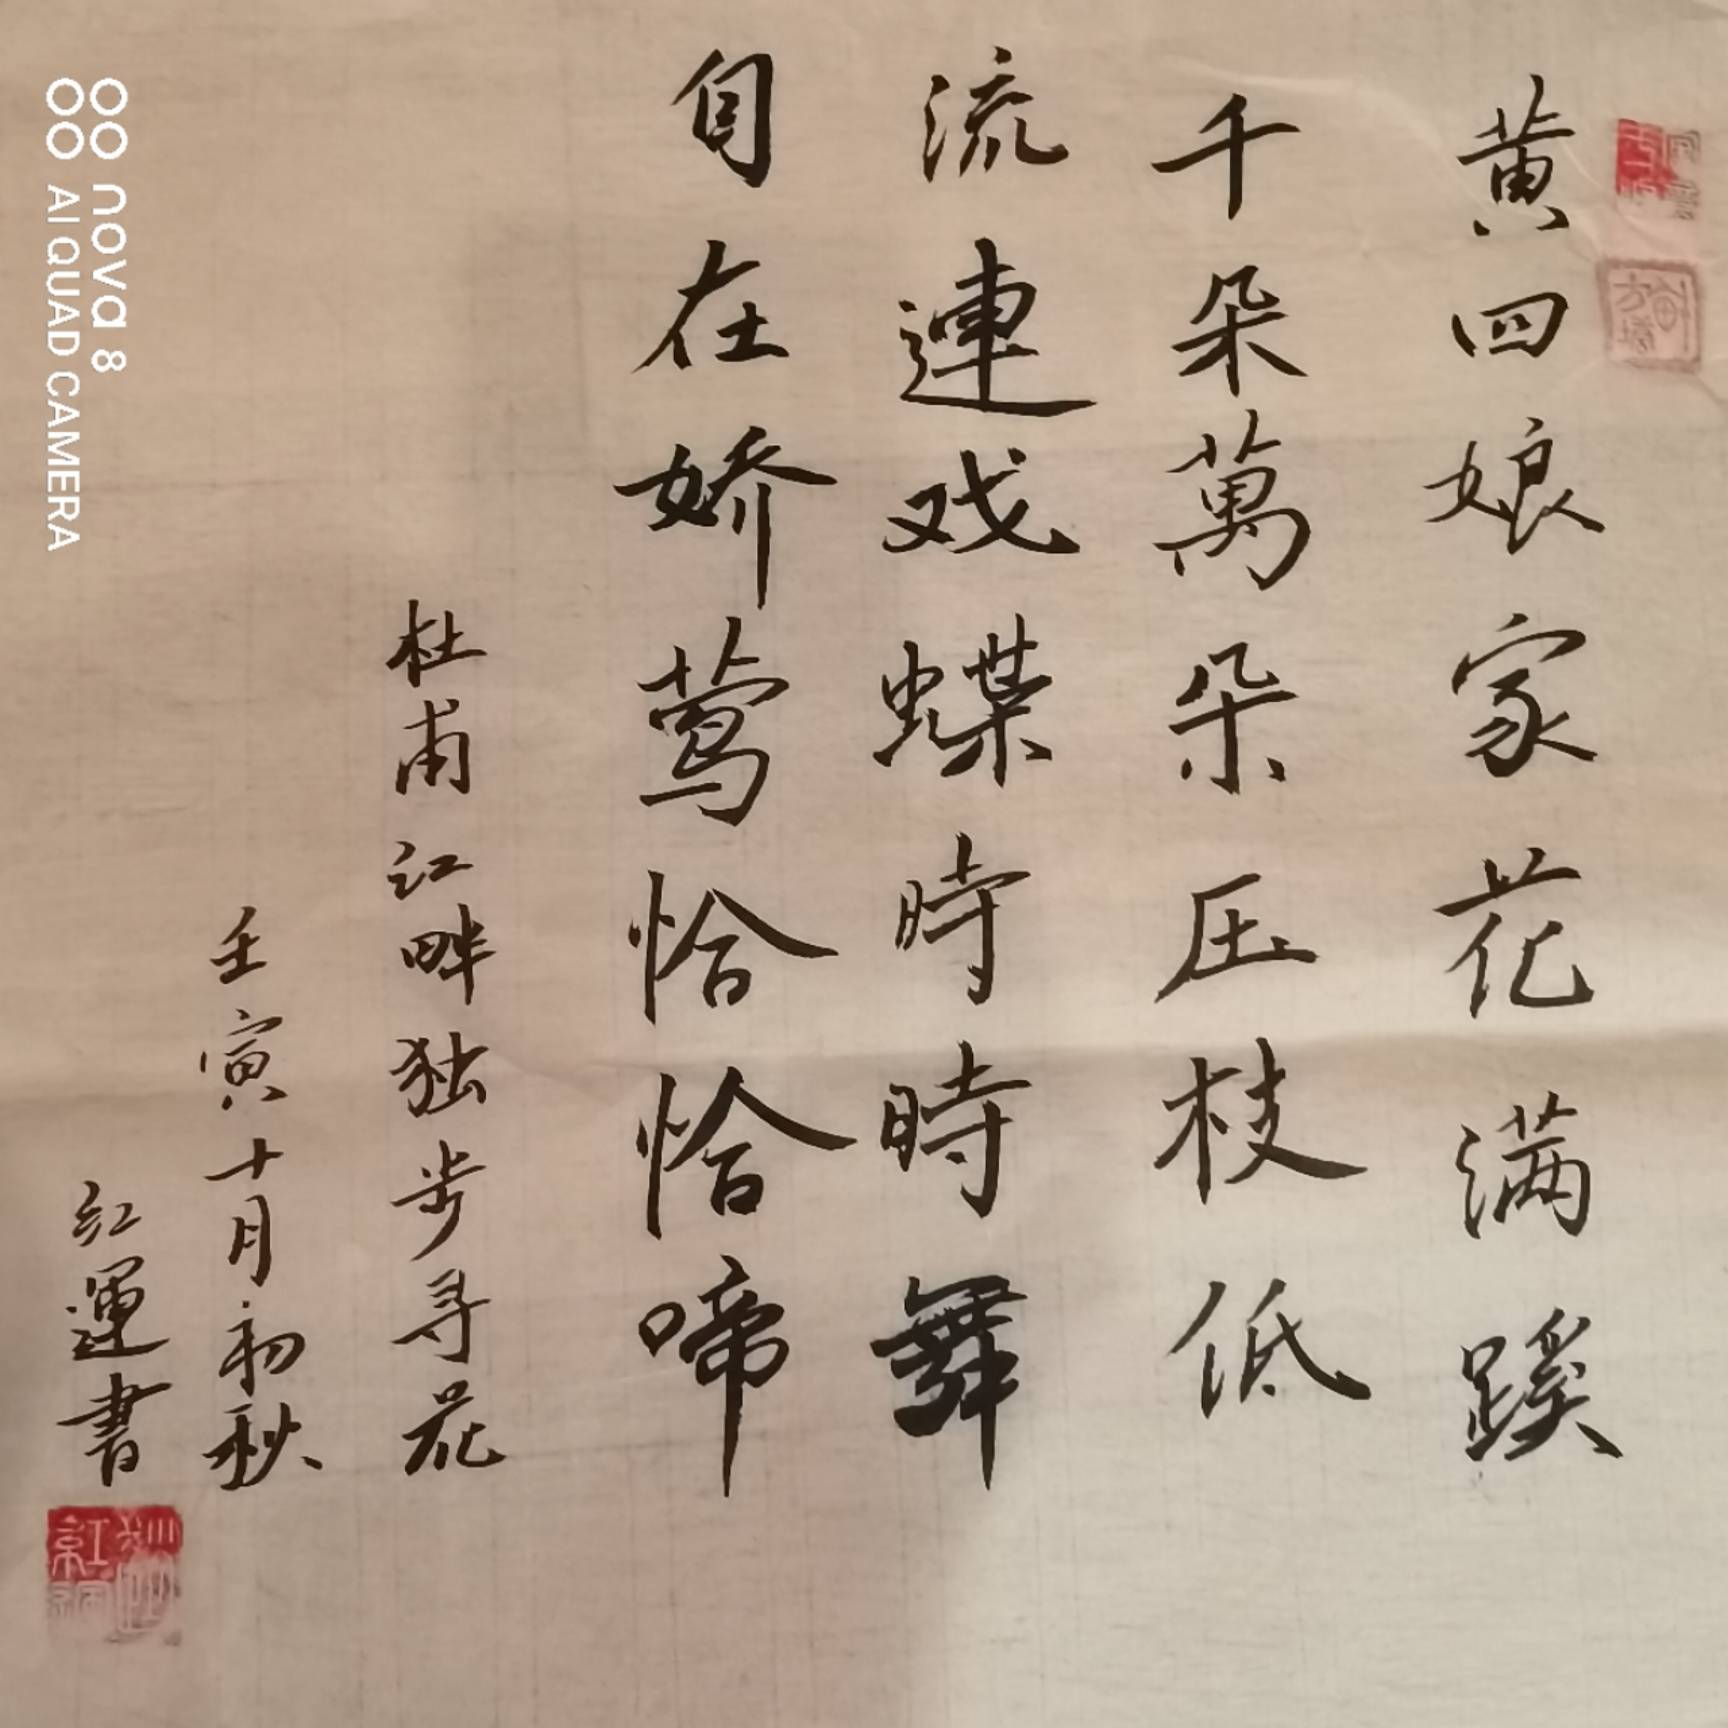 黄四娘家花满蹊
千朵萬朵压枝低
流連戏蝶時時舞
自在娇莺恰恰啼
杜甫江畔独步寻花
壬寅十月初秋
红運書
nova 8
AI QUAD CAMERA